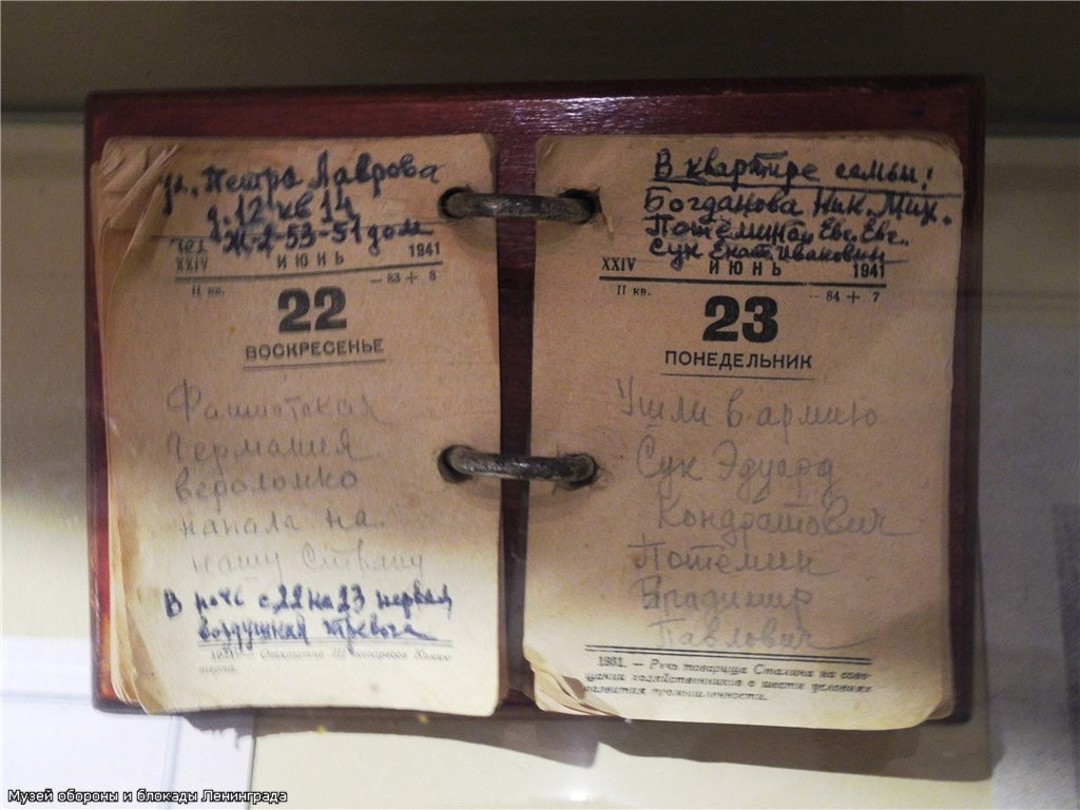 ул. Петра Лаврова
д. 12 кв 14
Ж-2-53-51 дом
XXIV ИЮНЬ 1941
II кв. – 83 + 8
22
ВОСКРЕСЕНЬЕ
Фашистская
Германия
вероломно
напала на
нашу Страну
В ночь с 22 на 23 первая
воздушная тревога
Открытие Конгресса Комин-
терна.
В квартире семьи:
Богданова Ник. Мих.
Потёмина Евг. Евг.
Сук Екат. Ивановны
XXIV ИЮНЬ 1941
II кв. – 84 + 7
23
ПОНЕДЕЛЬНИК
Ушли в армию
Сук Эдуард
Кондратович
Потёмин
Владимир
Павлович
1931. — Речь товарища Сталина на сове-
щании хозяйственников о шести условиях
развития промышленности.
Музей обороны и блокады Ленинграда